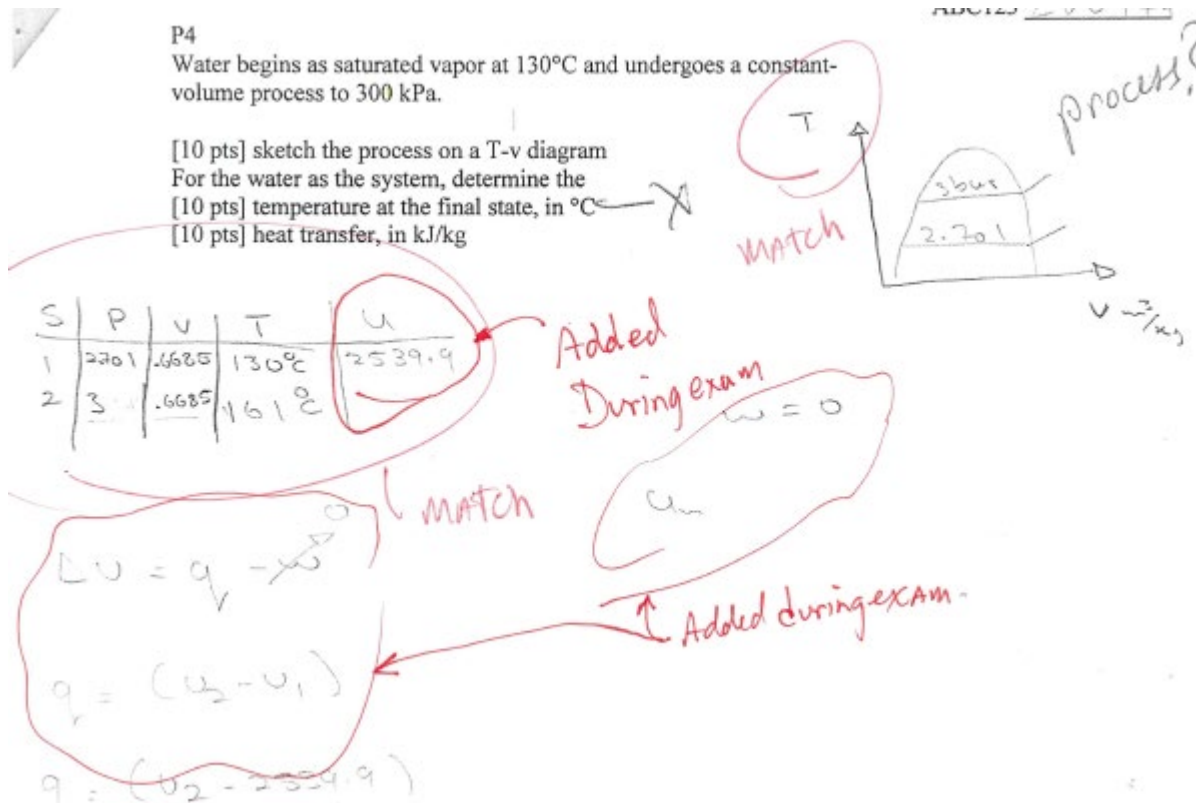 P4
Water begins as saturated vapor at 130°C and undergoes a constant-
volume process to 300 kPa.
[10 pts] sketch the process on a T-v diagram
For the water as the system, determine the
[10 pts] temperature at the final state, in °C
[10 pts] heat transfer, in kJ/kg
X
T
process?
3bar
2.701
v m³/kg
MATCH
S P v T u
1 2701 .6685 130°C 2539.9
2 3 .6685 161°C
Added
During exam
w = 0
MATCH
Added during exam.
ΔU = q - w 0
q = (u2 - u1)
q = (u2 - 2539.9)